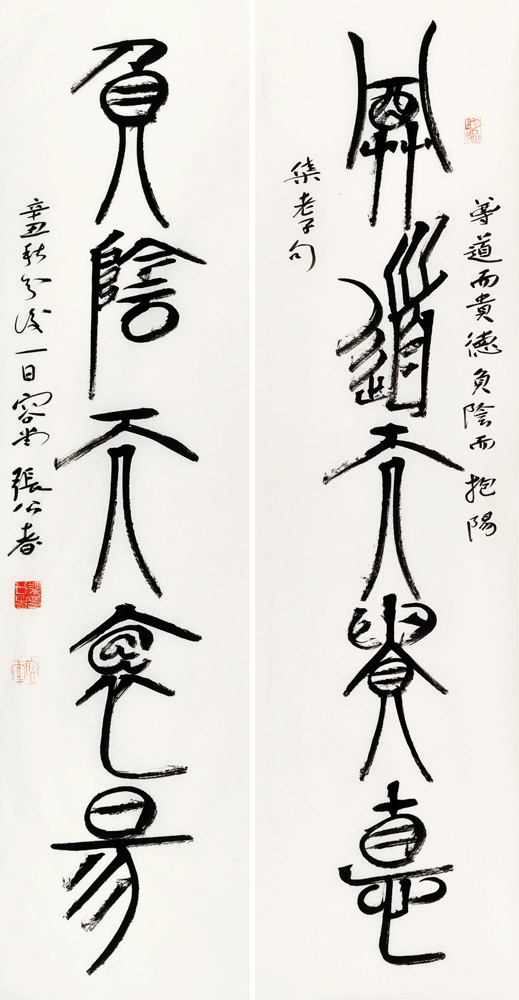 尊道而貴德負陰而抱陽
尊道而貴悳
集老子句
負陰而抱昜
辛丑秋分後一日容堂張公者